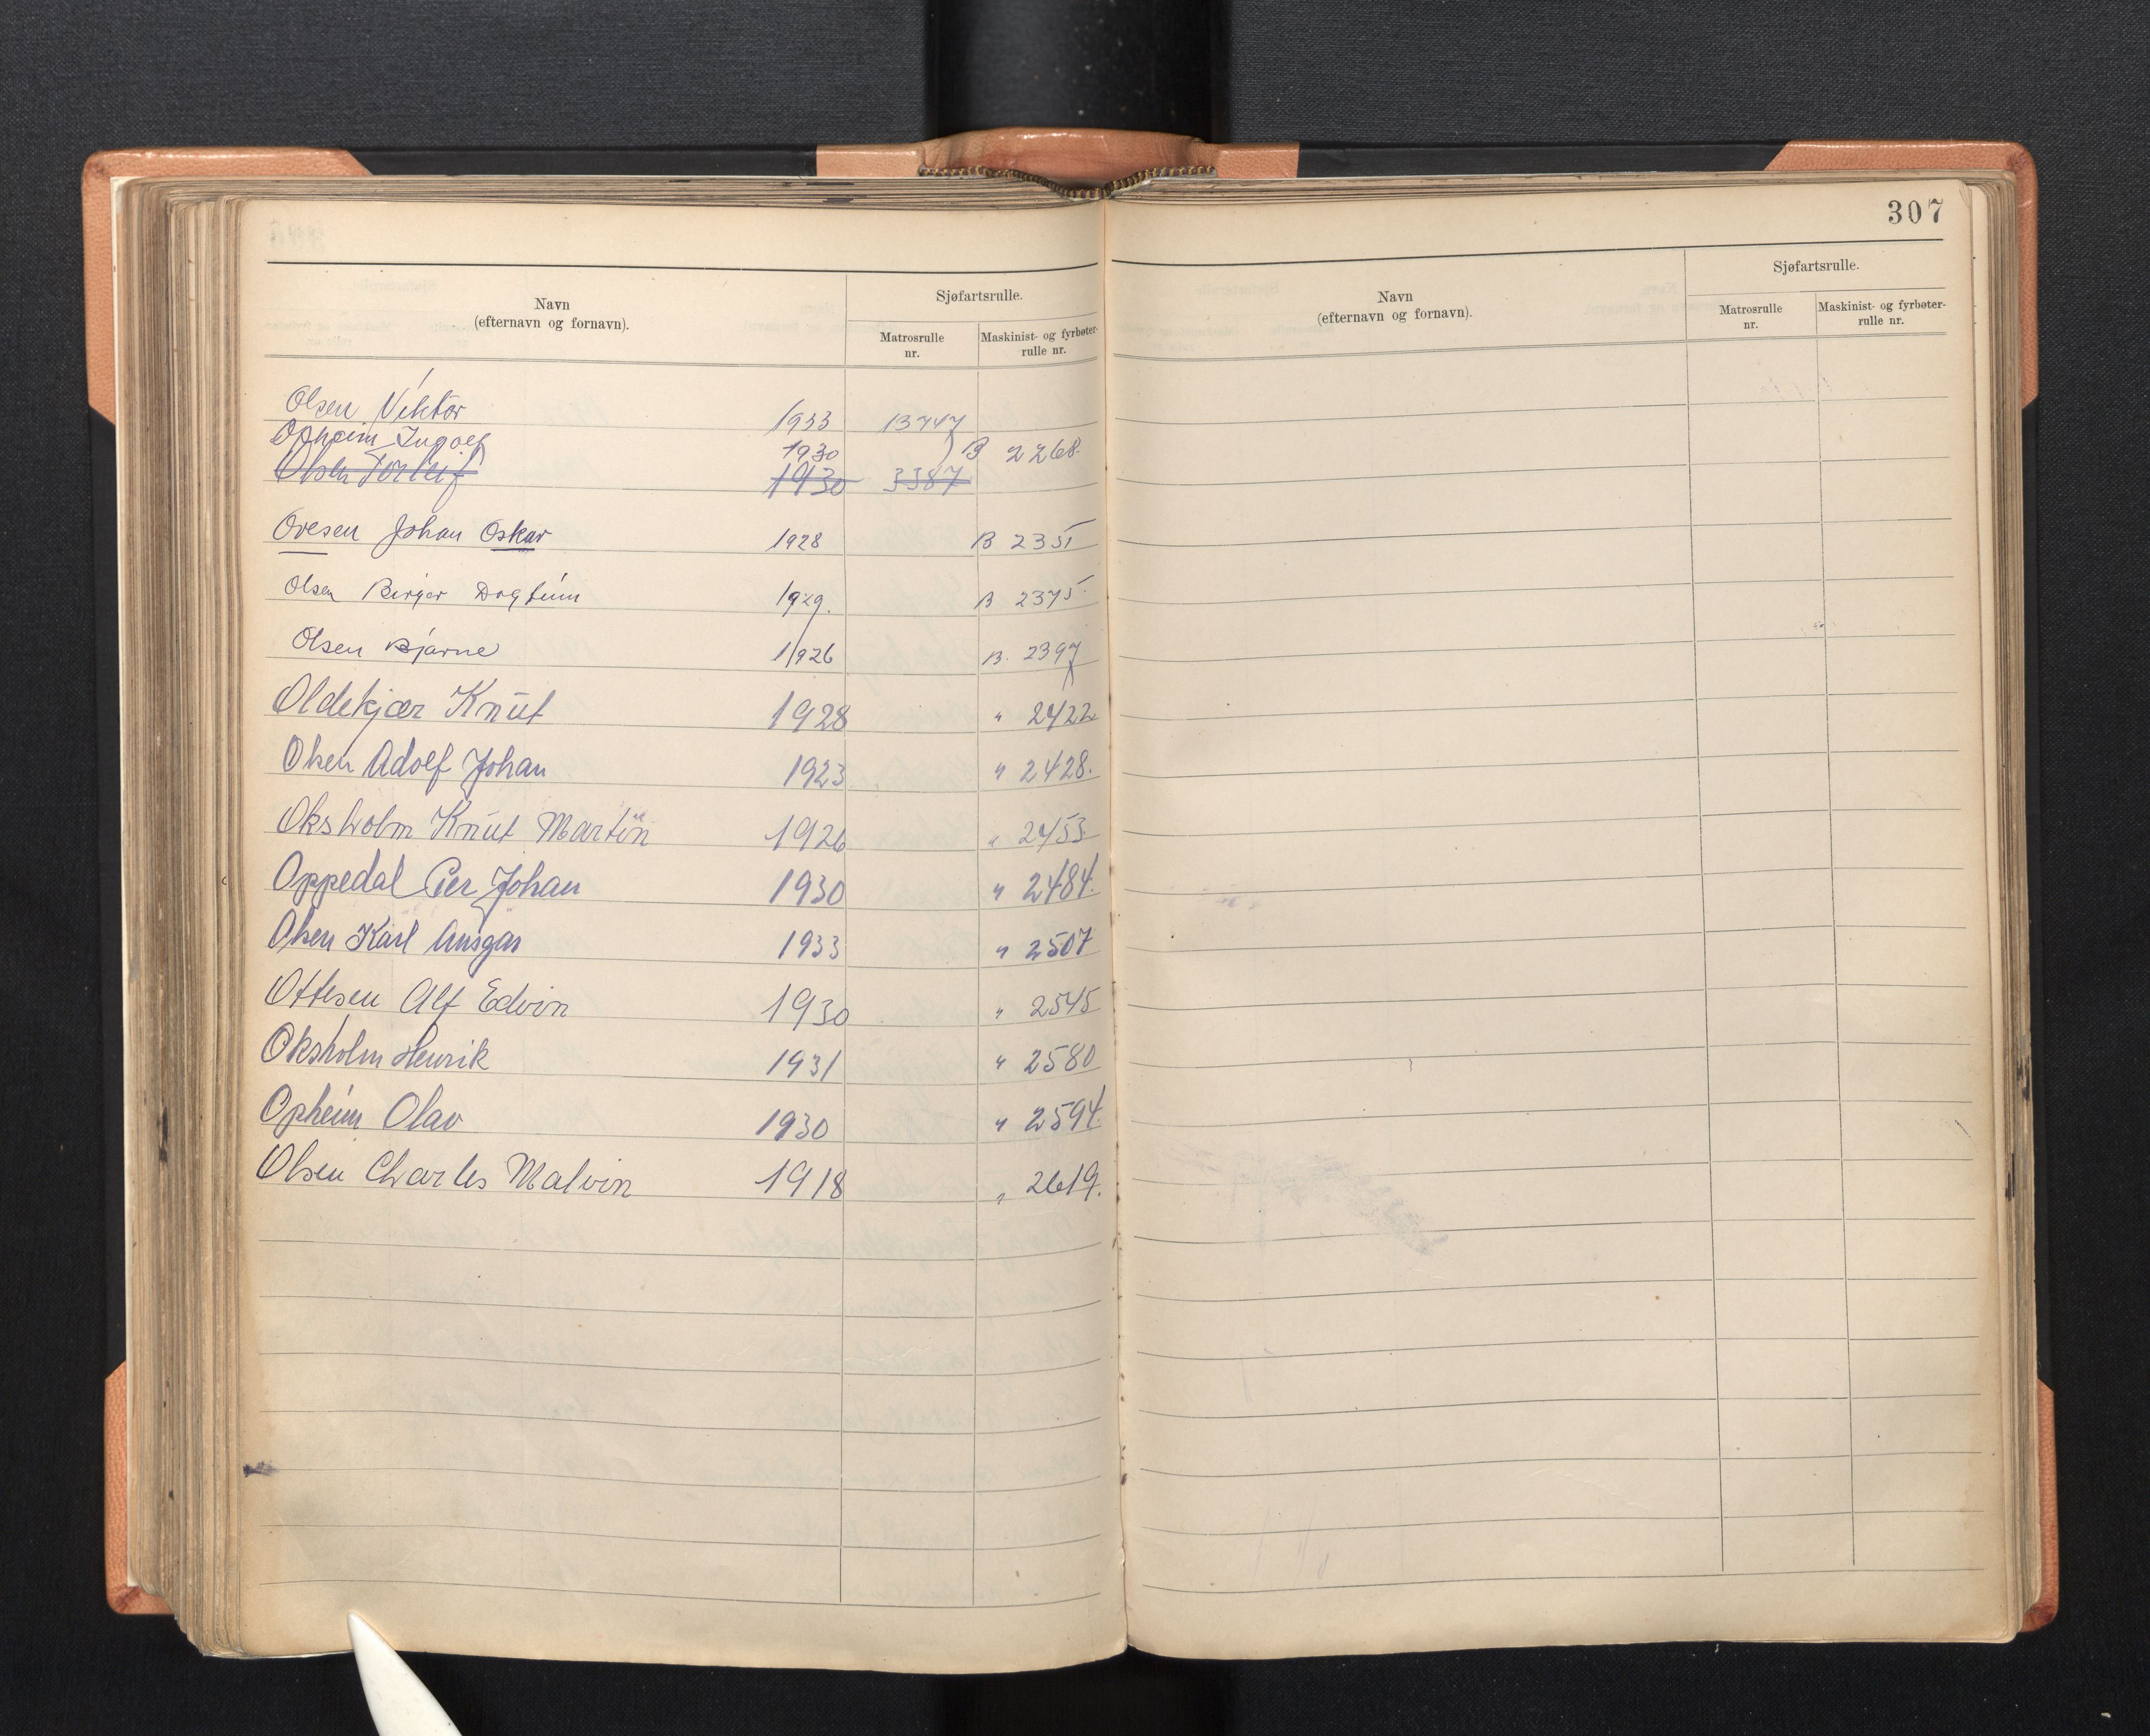 307
Navn
(efternavn og fornavn).
Sjøfartsrulle.
Matrosrulle
nr.
Maskinist- og fyrbøter-
rulle nr.
Olsen Viktor 1933 B747
Opheim Ingolf 1930 B 2268
Olsen Torleif 1930 3387
Ovesen Johan Oskar 1928 B 2351
Olsen Birger Dagfinn 1929. B 2375
Olsen Bjarne 1926 B. 2397
Oldekjær Knut 1928 " 2422
Olsen Adolf Johan 1923 " 2428.
Oksholm Knut Martin 1926 " 2453
Oppedal Per Johan 1930 " 2484.
Olsen Karl Ansgar 1933 " 2507
Ottesen Alf Edvin 1930 " 2545
Oksholm Henrik 1931 " 2580
Opheim Olav 1930 " 2594.
Olsen Charles Malvin 1918 " 2619.
Navn
(efternavn og fornavn).
Sjøfartsrulle.
Matrosrulle
nr.
Maskinist- og fyrbøter-
rulle nr.